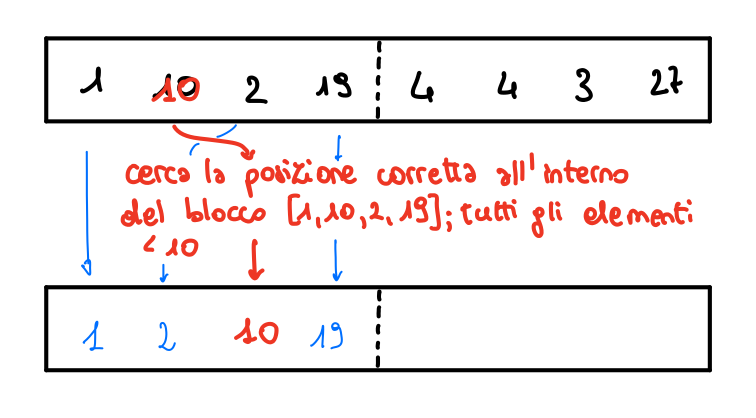 1 10 2 19 4 4 3 27
cerca la posizione corretta all'interno
del blocco [1,10,2,19]; tutti gli elementi
< 10
1 2 10 19